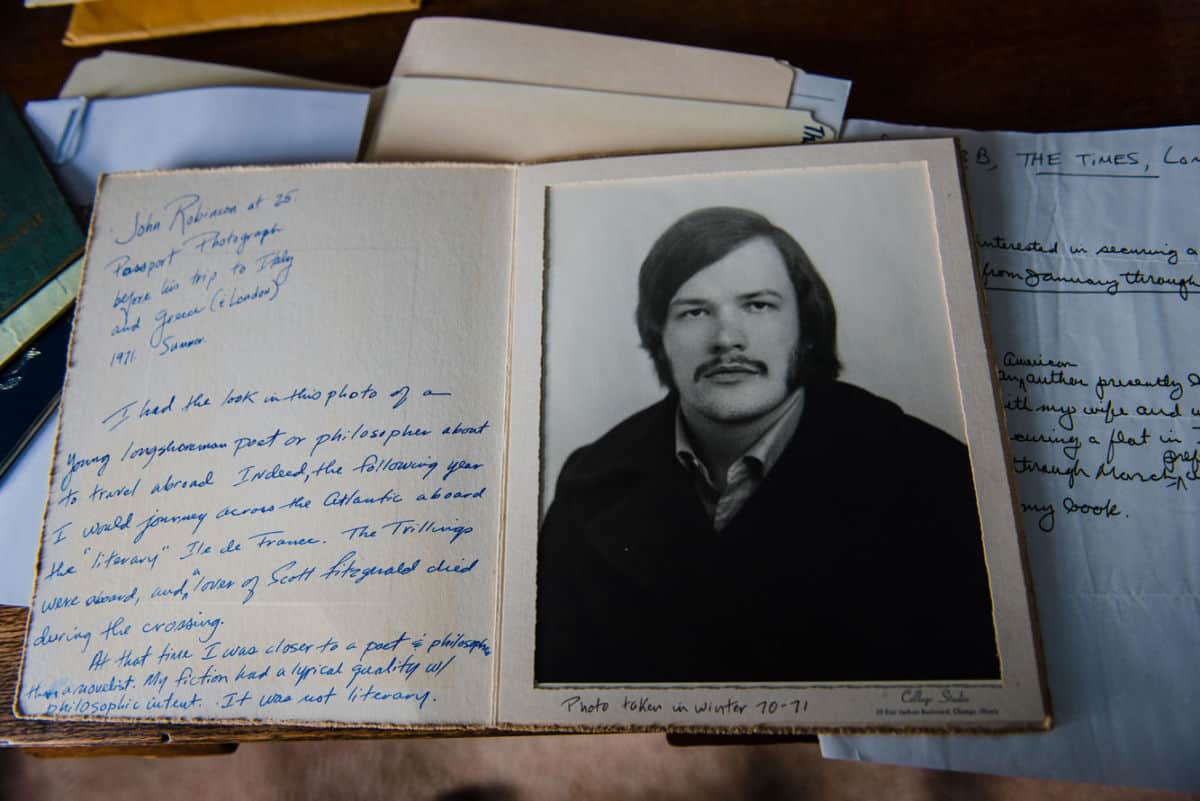 John Robinson at 25.
Passport Photograph
before his trip to Italy
and Greece (& London)
1971. Summer.
I had the look in this photo of a
young longshoreman poet or philosopher about
to travel abroad Indeed, the following year
I would journey across the Atlantic aboard
the "literary" Ile de France. The Trillings
were aboard, and a lover of Scott Fitzgerald died
during the crossing.
At that time I was closer to a poet & philosopher
than a novelist. My fiction had a lyrical quality w/
philosophic intent. It was not literary.
Photo taken in winter 70-71
College Studio
East Jackson Boulevard, Chicago, Illinois
Th
B, THE TIMES, Lon
interested in securing a
from January through
American
an author presently
ith my wife and
curing a flat in
pref
through March
my book.